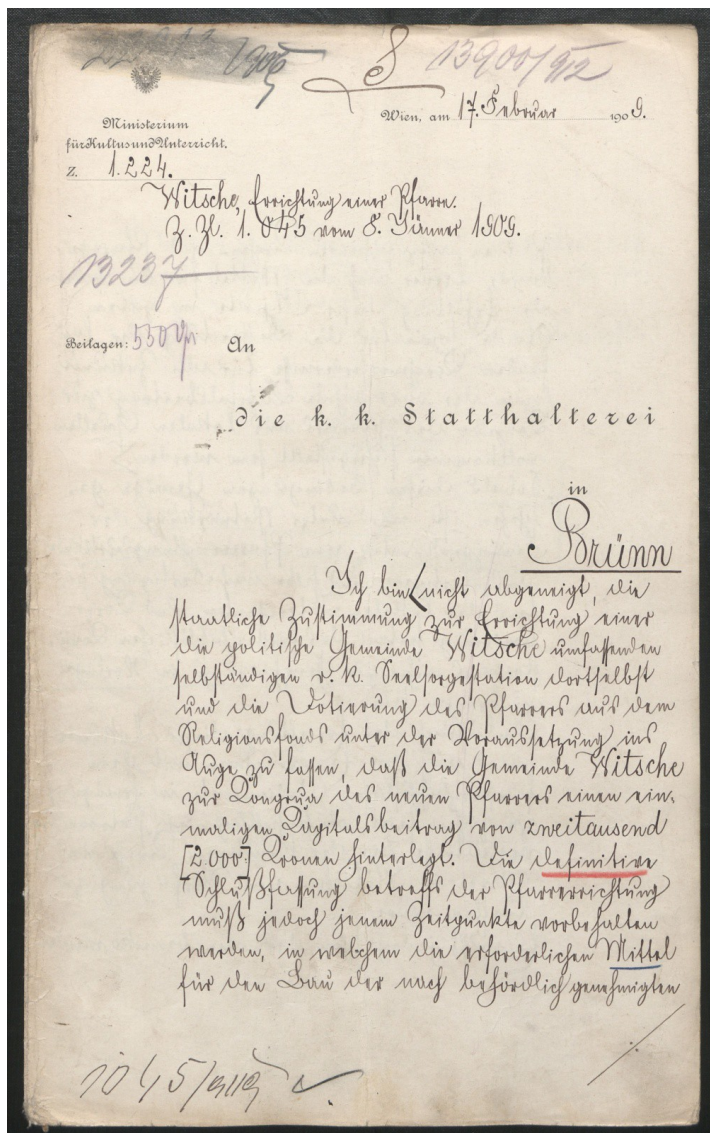 13900/912
Wien, am 17. Februar 1909.
Ministerium
für Kultus und Unterricht.
Z. 1.224.
Witsche, Errichtung einer Pfarre.
Z. Zl. 1.045 vom 8. Jänner 1909.
13237
Beilagen: An
die k. k. Statthalterei
in
Brünn
Ich bin nicht abgeneigt, die
staatliche Zustimmung zur Errichtung einer
die politische Gemeinde Witsche umfassenden
selbständigen r. k. Seelsorgestation dortselbst
und die Dotierung des Pfarrers aus dem
Religionsfonds unter der Voraussetzung ins
Auge zu fassen, daß die Gemeinde Witsche
zur Kongrua des neuen Pfarrers einen ein-
maligen Kapitalsbeitrag von zweitausend
[2.000] Kronen hinterlegt. Die definitive
Schlußfassung betreffs der Pfarrerrichtung
muß jedoch jenem Zeitpunkte vorbehalten
werden, in welchem die erforderlichen Mittel
für den Bau der nach behördlich genehmigten
1045/909